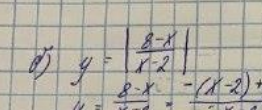 б) y = |8-x / x-2|
8-x -(x-2)+